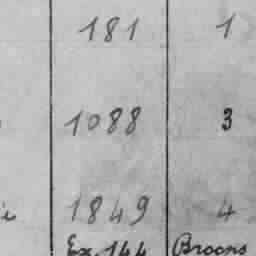 181 1
1088 3
1849 4
Ex. 144 Broons